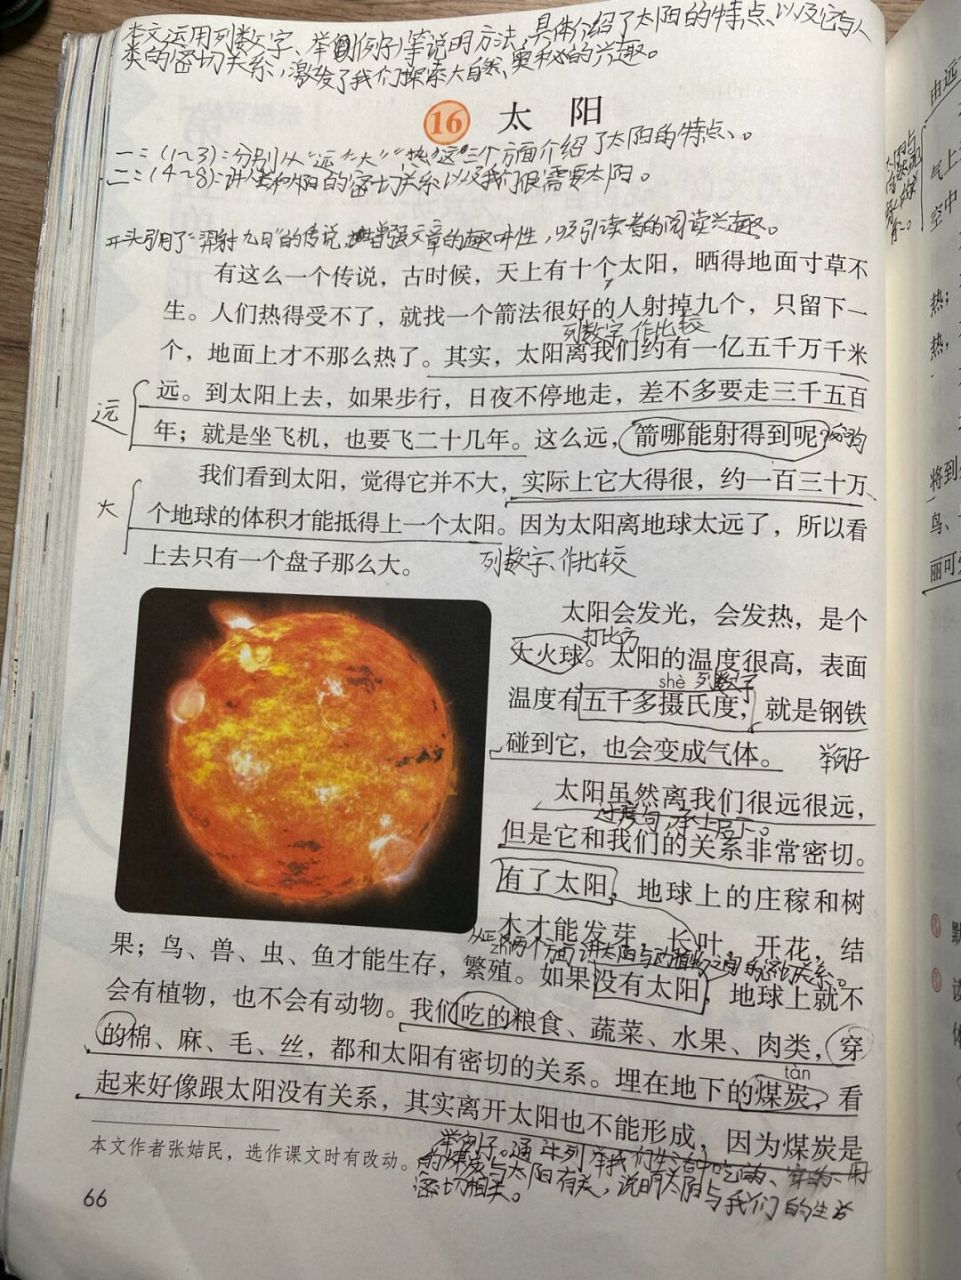 本文运用列数字、举例子等说明方法,具体介绍了太阳的特点、以及它与人
类的密切关系,激发了我们探索大自然奥秘的兴趣。
16 太阳
一:(1~3):分别从“远”“大”“热”这三个方面介绍了太阳的特点、。
二:(4~8):讲 和太阳的密切关系以及我们很需要太阳。
开头引用了“羿射九日”的传说, 增强文章的趣味性,吸引读者的阅读兴趣。
有这么一个传说,古时候,天上有十个太阳,晒得地面寸草不
生。人们热得受不了,就找一个箭法很好的人射掉九个,只留下一
列数字、作比较
个,地面上才不那么热了。其实,太阳离我们约有一亿五千万千米
远。到太阳上去,如果步行,日夜不停地走,差不多要走三千五百
远
年;就是坐飞机,也要飞二十几年。这么远,箭哪能射得到呢?
我们看到太阳,觉得它并不大,实际上它大得很,约一百三十万
大
个地球的体积才能抵得上一个太阳。因为太阳离地球太远了,所以看
上去只有一个盘子那么大。
列数字、作比较
太阳会发光,会发热,是个
打比方
大火球。太阳的温度很高,表面
shè 列数字
温度有五千多摄氏度,就是钢铁
碰到它,也会变成气体。
举例子
太阳虽然离我们很远很远,
过渡句,承上启下。
但是它和我们的关系非常密切。
有了太阳,地球上的庄稼和树
木才能发芽,长叶,开花,结
从正 两个方面讲太阳与动植物之间的密切关系。
果;鸟、兽、虫、鱼才能生存,繁殖。如果没有太阳,地球上就不
会有植物,也不会有动物。我们吃的粮食、蔬菜、水果、肉类,穿
的棉、麻、毛、丝,都和太阳有密切的关系。埋在地下的煤炭,看
tàn
起来好像跟太阳没有关系,其实离开太阳也不能形成,因为煤炭是
本文作者张姞民,选作课文时有改动。
举例子。通过列举我们生活中吃的、穿的、用
的煤炭与太阳有关,说明太阳与我们的生活
密切相关。
66
由远
气上
空中
热;
热,
将到
鸟、
丽可